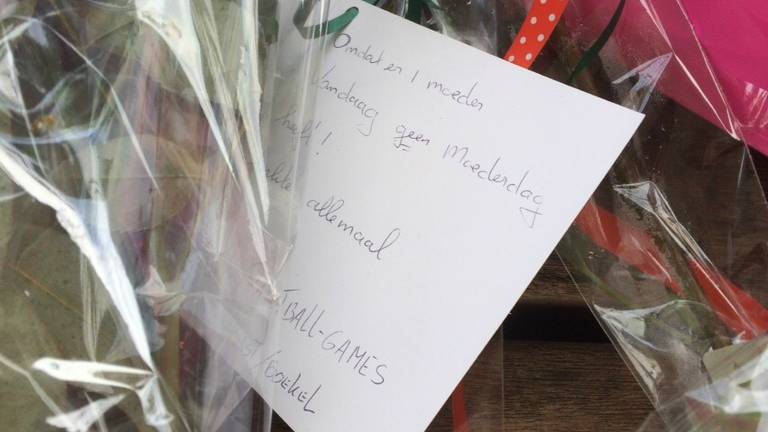 Omdat er 1 moeder
Vandaag geen Moederdag
heeft!
allemaal
TBALL-GAMES
/BOEKEL